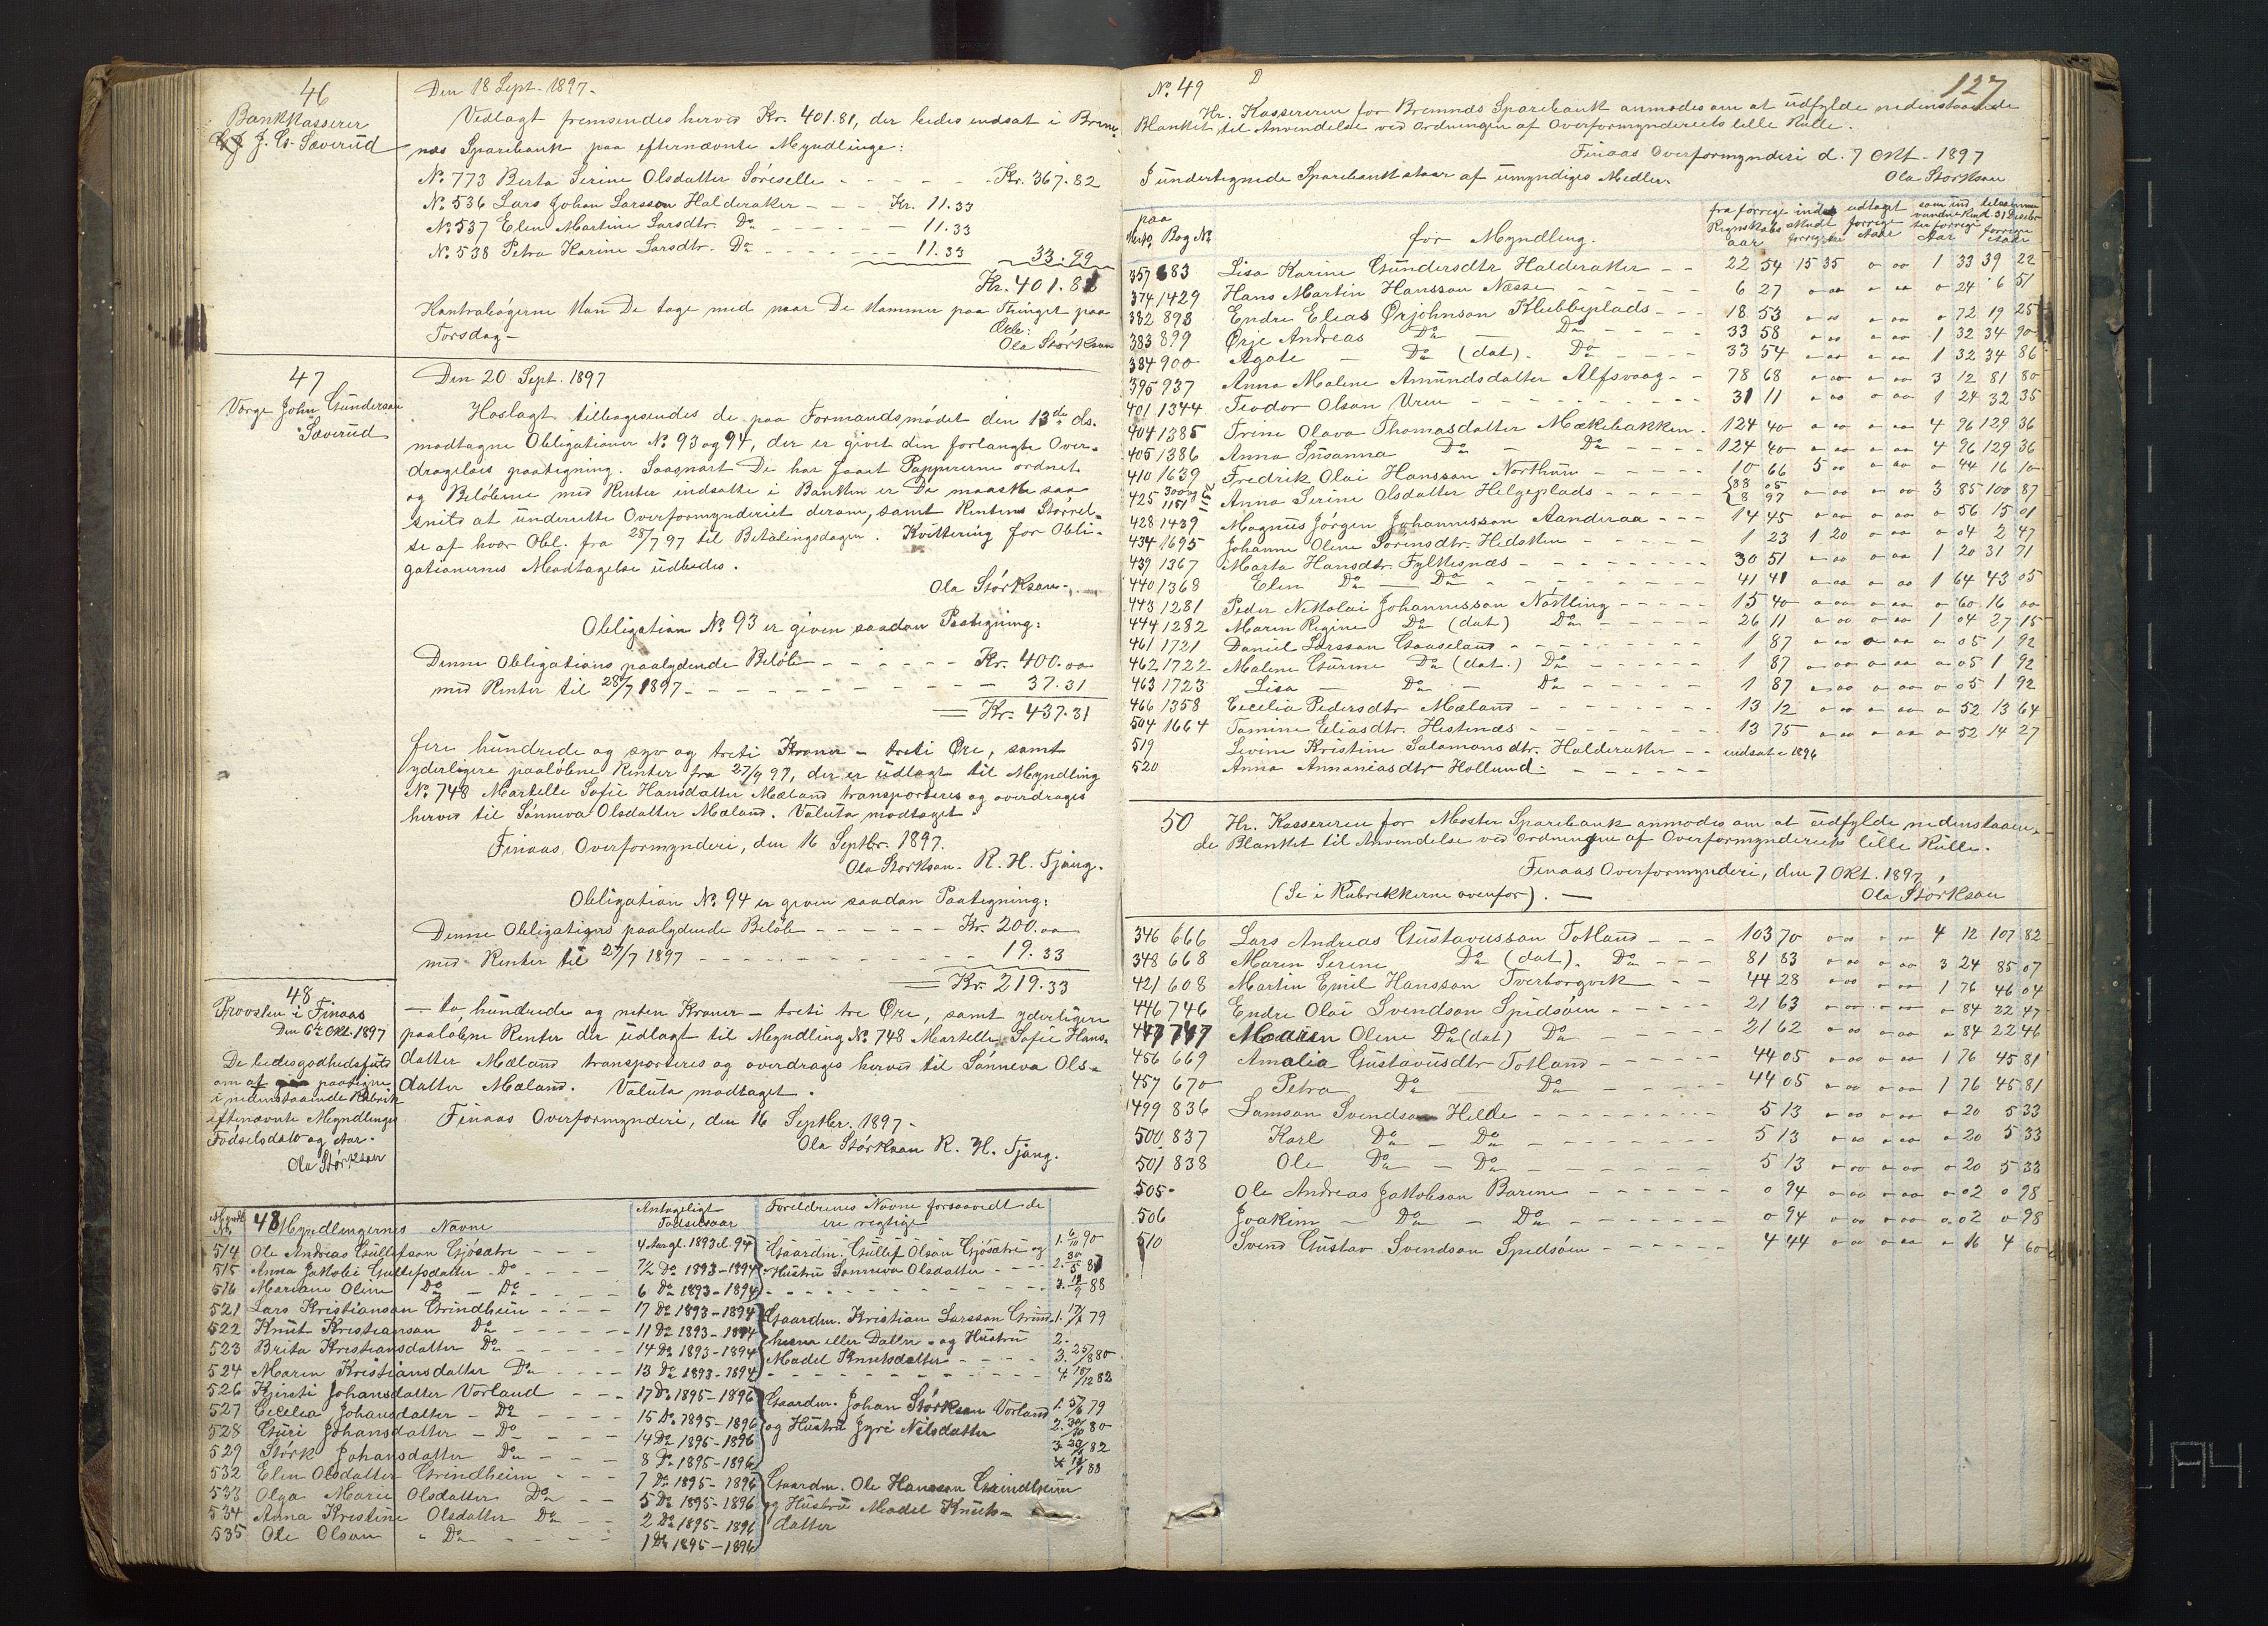 46
Bankkasserer
J. G. Sæverud
Den 18 Sept. 1897.
Vedlagt fremsendes herved Kr. 401.81, der bedes indsat i Brem-
næs Sparebank paa efternævnte Myndlinge:
No. 773 Berta Serine Olsdatter Søreselle - - - - - Kr. 367.82
No. 536 Lars Johan Larsson Halderaker - - - Kr. 11.33
No. 537 Elen Martine Larsdtr. Do - - - - - 11.33
No. 538 Petra Karine Larsdtr. Do - - - - - 11.33 33.99
Kr. 401.81
Kontrabøgerne kan De tage med naar De kommer paa Thinget paa
Torsdag -
Ærb:
Ola Størkson
47
Verge John Gunderson
Sæverud
Den 20 Sept. 1897
Hoslagt tilbagesendes de paa Formandsmødet den 13de ds.
modtagne Obligationer No. 93 og 94, der er givet din forlangte Over-
dragelses paategning. Saasnart De har faaet Papirerne ordnet
og Beløbene med Renter indsatte i Banken er De maaske saa
snild at underrette Overformynderiet derom, samt Rentens Størrel-
se af hver Obl. fra 28/7 97 til Betalingsdagen. Kvittering for Obli-
gationernes Modtagelse udbedes.
Ola Størkson.
Obligation No. 93 er given saadan Paategning:
Denne Obligations paalydende Beløb - - - - - Kr. 400.00
med Renter til 28/7 1897 - - - - - - - 37.31
= Kr. 437.31
fire hundrede og syv og treti Kroner - treti Øre, samt
yderligere paaløbne Renter fra 27/7 97, der er udlagt til Myndling
No. 748 Martelle Sofie Hansdatter Mæland transporteres og overdrages
herved til Sønneva Olsdatter Mæland. Valuta modtaget
Finaas Overformynderi, den 16 Septbr. 1897.
Ola Størkson. R. H. Tjang.
Obligation No. 94 er given saadan Paategning:
Denne Obligations paalydende Beløb - - - - - Kr. 200.00
med Renter til 27/7 1897 - - - - - - - 19.33
= Kr. 219.33
- to hundrede og niten Kroner - treti tre Øre, samt yderligere
paaløbne Renter der udlagt til Myndling No. 748 Martelle Sofie Hans-
datter Mæland transporteres og overdrages herved til Sønneva Ols-
datter Mæland. Valuta modtaget.
Finaas Overformynderi, den 16 Septbr. 1897.
Ola Størkson R. H. Tjang.
48
Provsten i Finaas
Den 6te Okt. 1897
De bedes godhedsfuld
om at paategne
i nedenstaaende Rubrik
efternævnte Myndlinges
Fødselsdato og Aar.
Ola Størkson
Myndl. No. 48 Myndlingernes Navne Antageligt Fødselsaar Foreldrenes Navne forsaavidt de ere rigtige
514 Ole Andreas Gullefson Gjøsætre - - - 4 Aar gl. 1893 el. 94 Gaardm. Gullef Olson Gjøsætre og 1. 6/10 90
515 Anna Jakobe Gullefsdatter Do - - - 7½ Do 1893-1894 Hustru Sønneva Olsdatter - - - 2. 30/5 87
516 Mariane Oline Do - Do - - - 6 Do 1893-1894 - - - 3. 19/9 88
521 Lars Kristianson Grindheim - - - 17 Do 1893-1894 Gaardm. Kristian Larsson Grind- 1. 79
522 Knut Kristianson Do - - - 11 Do 1893-1894 heim eller Døtter - og Hustru 2.
523 Brita Kristiansdatter Do - - - 14 Do 1893-1894 Madel Knutsdatter - - - 3. 25/8 80
524 Maren Kristiansdatter Do - - - 13 Do 1893-1894 - - - 4. 18/12 82
526 Kjersti Johansdatter Vorland - - - 17 Do 1895-1896 Gaardm. Johan Størkson Vorland 1. 79
527 Cecelia Johansdatter - Do - - - 15 Do 1895-1896 og Hustru Jyri Nilsdatter 2. 30/10 80
528 Guri Johansdatter - Do - - - 14 Do 1895-1896 3. 82
529 Størk Johansdatter Do - - - 8 Do 1895-1896 4. 88
532 Elen Olsdatter Grindheim - - - 7 Do 1895-1896 Gaardm. Ole Hansson Grindheim
533 Olga Marie Olsdatter Do - - 5 Do 1895-1896 og Hustru Madel Knuts-
534 Anna Kristine Olsdatter Do - - 2 Do 1895-1896 datter
535 Ole Olson " Do - - - 1 Do 1895-1896
127
No. 49
Hr. Kassereren for Bremnæs Sparebank anmodes om at udfylde nedenstaaende
Blanket til Anvendelse ved Ordningen af Overformynderiets lille Rulle.
Finaas Overformynderi d. 7 Okt. 1897
Ola Størkson
I undertegnede Sparebank staar af umyndiges Midler.
paa Bog No. for Myndling. fra forrige Regnskabsaar indsat forrige Aar udtaget forrige Aar som indvundne Renter forrige Aar tilsammen 31 Decbr forrige Aar
357 683 Lisa Karine Gundersdtr Halderaker - - 22 54 15 35 0 00 1 33 39 22
374 1429 Hans Martin Hansson Næsse - - - 6 27 0 00 0 00 0 24 6 51
382 898 Endre Elias Ørjohnson Klubbeplads - - - 18 53 0 00 0 00 0 72 19 25
383 899 Ørje Andreas Do - Do - - - 33 58 0 00 0 00 1 32 34 90
384 900 Agate - Do (dat). Do - - - 33 54 0 00 0 00 1 32 34 86
395 937 Anna Malene Amundsdatter Alfsvaag - - 78 68 0 00 0 00 3 12 81 80
401 1344 Teodor Olson Uren - - - 31 11 0 00 0 00 1 24 32 35
404 1385 Trine Olava Thomasdatter Mækebakken - 124 40 0 00 0 00 4 96 129 36
405 1386 Anna Susanna Do - Do - - - 124 40 0 00 0 00 4 96 129 36
410 1639 Fredrik Olai Hansson Northun - - - 10 66 5 00 0 00 0 44 16 10
425 300 og 1151 Anna Serine Olsdatter Helgeplads - - - 88 05 8 97 0 00 0 00 3 85 100 87
428 1439 Magnus Jørgen Johannesson Aanderaa - - - 14 45 0 00 0 00 0 56 15 01
434 1695 Johanne Olene Sørensdtr. Hidsken - - - 1 23 1 20 0 00 0 04 2 47
439 1367 Marta Hansdtr. Fylkesnæs - - - 30 51 0 00 0 00 1 20 31 71
440 1368 Elen Do - Do - - - 41 41 0 00 0 00 1 64 43 05
443 1281 Peder Nikolai Johannesson Nøstling - - - 15 40 0 00 0 00 0 60 16 00
444 1282 Maren Regine Do (dat) Do - - - 26 11 0 00 0 00 1 04 27 15
461 1721 Daniel Larsson Gaaseland - - - 1 87 0 00 0 00 0 05 1 92
462 1722 Malene Gurine Do (dat.) Do - - - 1 87 0 00 0 00 0 05 1 92
463 1723 Lisa - Do - Do - - - 1 87 0 00 0 00 0 05 1 92
466 1358 Cecelia Pedersdtr Mæland - - - 13 12 0 00 0 00 0 52 13 64
504 1664 Tomine Eliasdtr. Hestenæs - - - 13 75 0 00 0 00 0 52 14 27
519 Lovine Kristine Salamonsdtr. Halderaker - - indsat i 1896
520 Anna Annaniasdtr Hollund - - -
50 Hr. Kassereren for Moster Sparebank anmodes om at udfylde nedenstaaen-
de Blanket til Anvendelse ved Ordningen af Overformynderiets lille Rulle.
Finaas Overformynderi, den 7 Okt. 1897
(Se i Rubrikkerne ovenfor). - Ola Størkson
346 666 Lars Andreas Gustavusson Totland - - - 103 70 0 00 0 00 4 12 107 82
348 668 Maren Serine Do (dat). Do - - - 81 83 0 00 0 00 3 24 85 07
421 608 Martin Emil Hansson Tverborgvik - - - 44 28 0 00 0 00 1 76 46 04
446 746 Endre Olai Svendson Spidsøen - - - 21 63 0 00 0 00 0 84 22 47
447 747 Maren Olene Do (dat) Do - 21 62 0 00 0 00 0 84 22 46
456 669 Amalia Gustavusdtr Totland - - - 44 05 0 00 0 00 1 76 45 81
457 670 Petra Do - Do - - - 44 05 0 00 0 00 1 76 45 81
499 836 Samson Svendson Helde - - - 5 13 0 00 0 00 0 20 5 33
500 837 Karl Do - Do - - - 5 13 0 00 0 00 0 20 5 33
501 838 Ole Do - Do - - - 5 13 0 00 0 00 0 20 5 33
505 Ole Andreas Jakobson Barene - - - 0 94 0 00 0 00 0 02 0 98
506 Joakim - Do - Do - - - 0 94 0 00 0 00 0 02 0 98
510 Svend Gustav Svendson Spidsøen - - - 4 44 0 00 0 00 0 16 4 60
A4